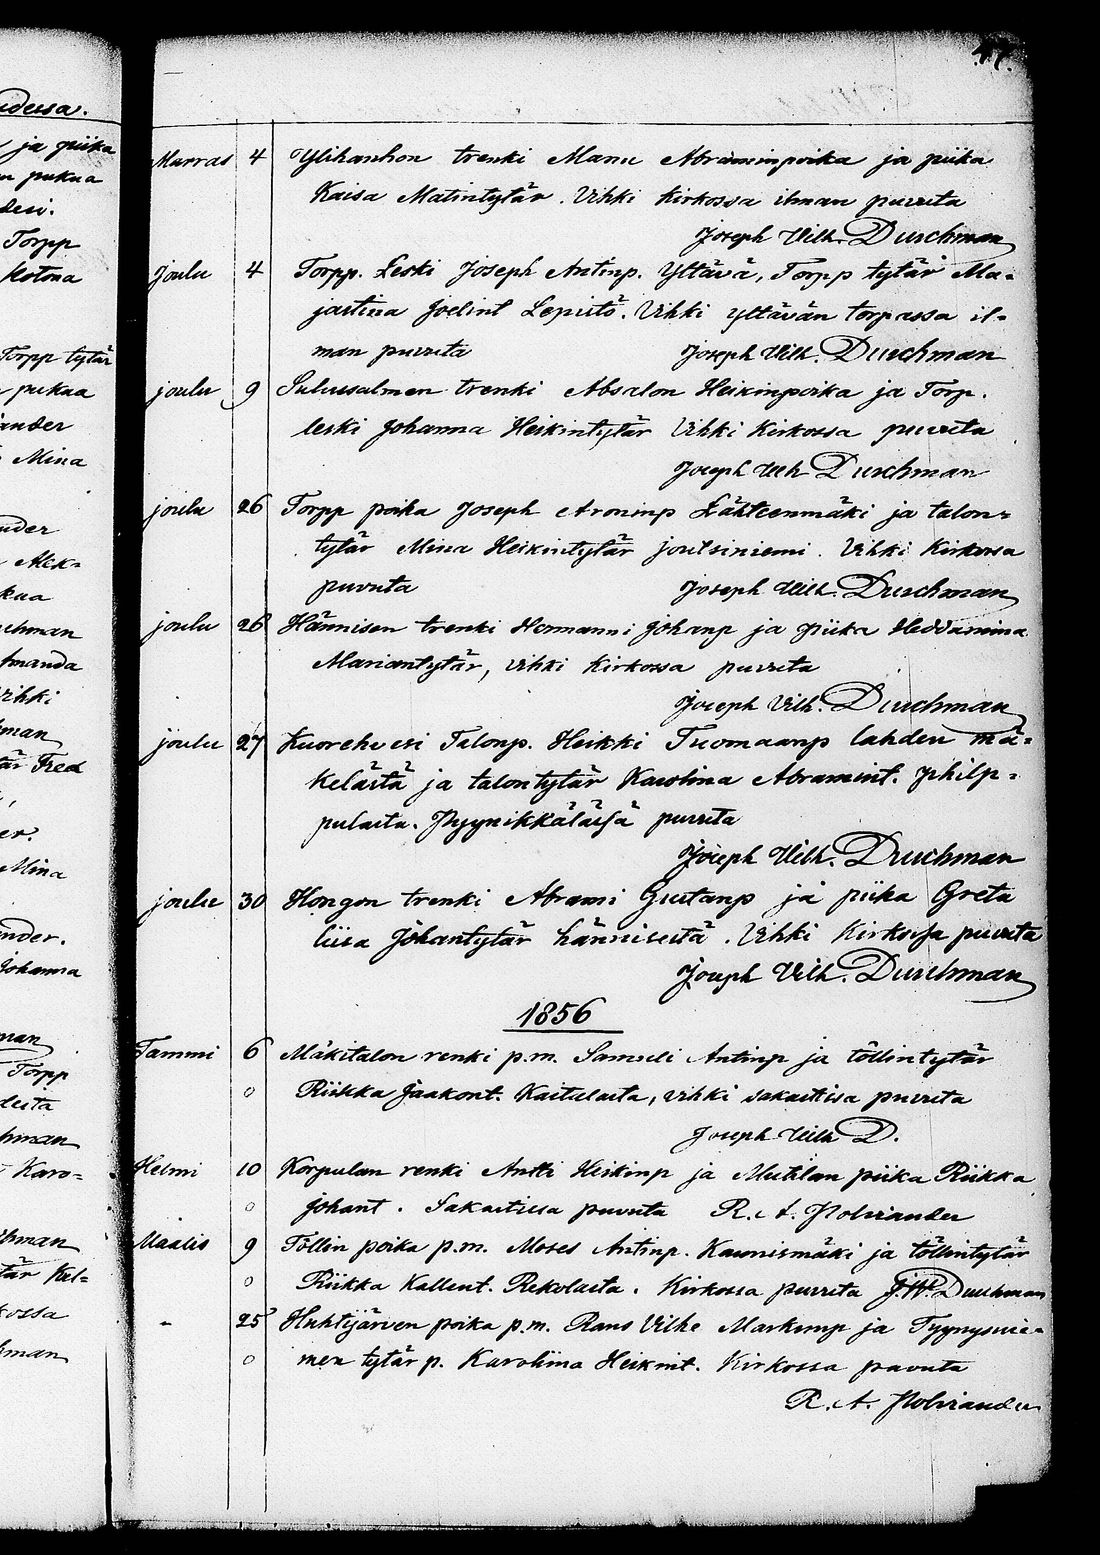 udessa.
ja piika
pukua
desi.
Torpp
kotona
Torpp tytär
pukua
ander
Mina
nder
Alek-
kua
chman
Amanda
vihki
man
tär Fred
er.
Mina
nder.
Johanna
man
Torpp
hman
Karo-
hman
tär Kal-
kossa
hman
47.
Marras 4 Ylihanhon trenki Manu Abraminpoika ja piika
Kaisa Matintytär. Vihki Kirkossa ilman puvuta
Joseph Vilh. Durchman
Joulu 4 Torpp. Leski Joseph Antinp. Yltävä, Torpp tytär Ma-
jastina Joelint Lepistö. Vihki yltävän torpassa il-
man puvuta Joseph Vilh. Durchman
joulu 9 Sulussalmen trenki Absalon Heikinpoika ja Torp.
leski Johanna Heikintytär Vihki Kirkossa puvuta
Joseph Vilh Durchman
joulu 26 Torpp poika Joseph Aroninp Lähteenmäki ja talon-
tytär Mina Heikintytär joutsiniemi. Vihki Kirkossa
puvuta Joseph Vilh. Durchman
joulu 26 Hännisen trenki Hermanni Johanp ja piika Heddamina
Mariantytär, vihki Kirkossa puvuta
Joseph Vilh. Durchman
joulu 27 Kuorehvesi Talonp. Heikki Tuomaanp lahden mä-
kelästä ja talontytär Karolina Abramint. philp-
pulasta. Pyynikkälässä puvuta
Joseph Vilh. Durchman
joulu 30 Hongon trenki Abrami Gustanp ja piika Greta
liisa Johantytär hännisestä. Vihki Kirkossa puvuta
Joseph Vilh. Durchman
1856
Tammi 6 Mäkitalon renki p.m. Samuli Antinp ja töllintytär
o Riikka Jaakont. Kaitalasta, vihki sakastissa puvuta
Joseph Vilh D.
Helmi 10 Korpulan renki Antti Heikinp ja Mutilan piika Riikka
o Johant. Sakastissa puvuta R. A. Holvrander
Maalis 9 Töllin poika p.m. Moses Antinp. Kaunismäki ja töllintytär
o Riikka Kallent. Rekolasta. Kirkossa puvuta J.W. Durchman
- 25 Huhtijärven poika p.m. Rans Vilhe Markunp ja Tyynysnie-
o men tytär p. Karoliina Heikint. Kirkossa puvuta
R. A. Holvrander